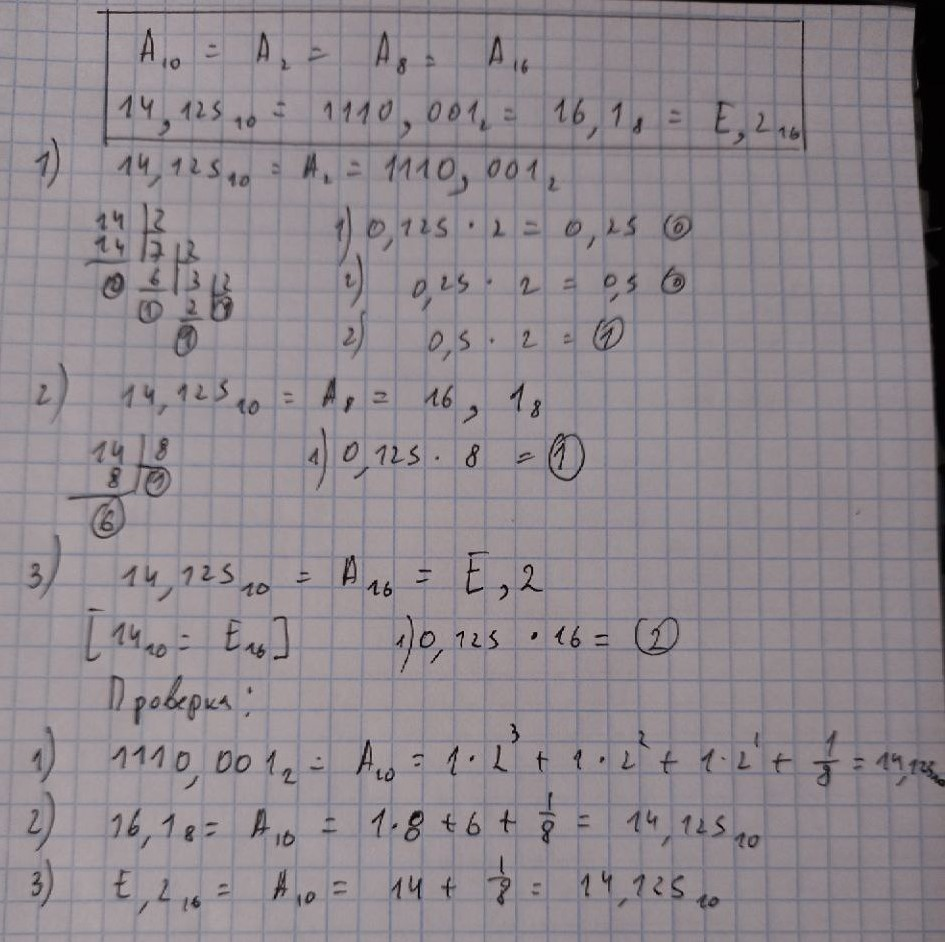 A₁₀ = A₂ = A₈ = A₁₆
14,125₁₀ = 1110,001₂ = 16,1₈ = E,2₁₆
1) 14,125₁₀ = A₂ = 1110,001₂
14 2
14 7 2
0 6 3 2
1 2 1
1
1) 0,125 · 2 = 0,25 0
2) 0,25 · 2 = 0,5 0
2) 0,5 · 2 = 1
2) 14,125₁₀ = A₈ = 16,1₈
14 8
8 1
6
1) 0,125 · 8 = 1
3) 14,125₁₀ = A₁₆ = E,2
[14₁₀ = E₁₆] 1) 0,125 · 16 = 2
Проверка:
1) 1110,001₂ = A₁₀ = 1·2³ + 1·2² + 1·2¹ + 1/8 = 14,125₁₀
2) 16,1₈ = A₁₀ = 1·8 + 6 + 1/8 = 14,125₁₀
3) E,2₁₆ = A₁₀ = 14 + 1/8 = 14,125₁₀